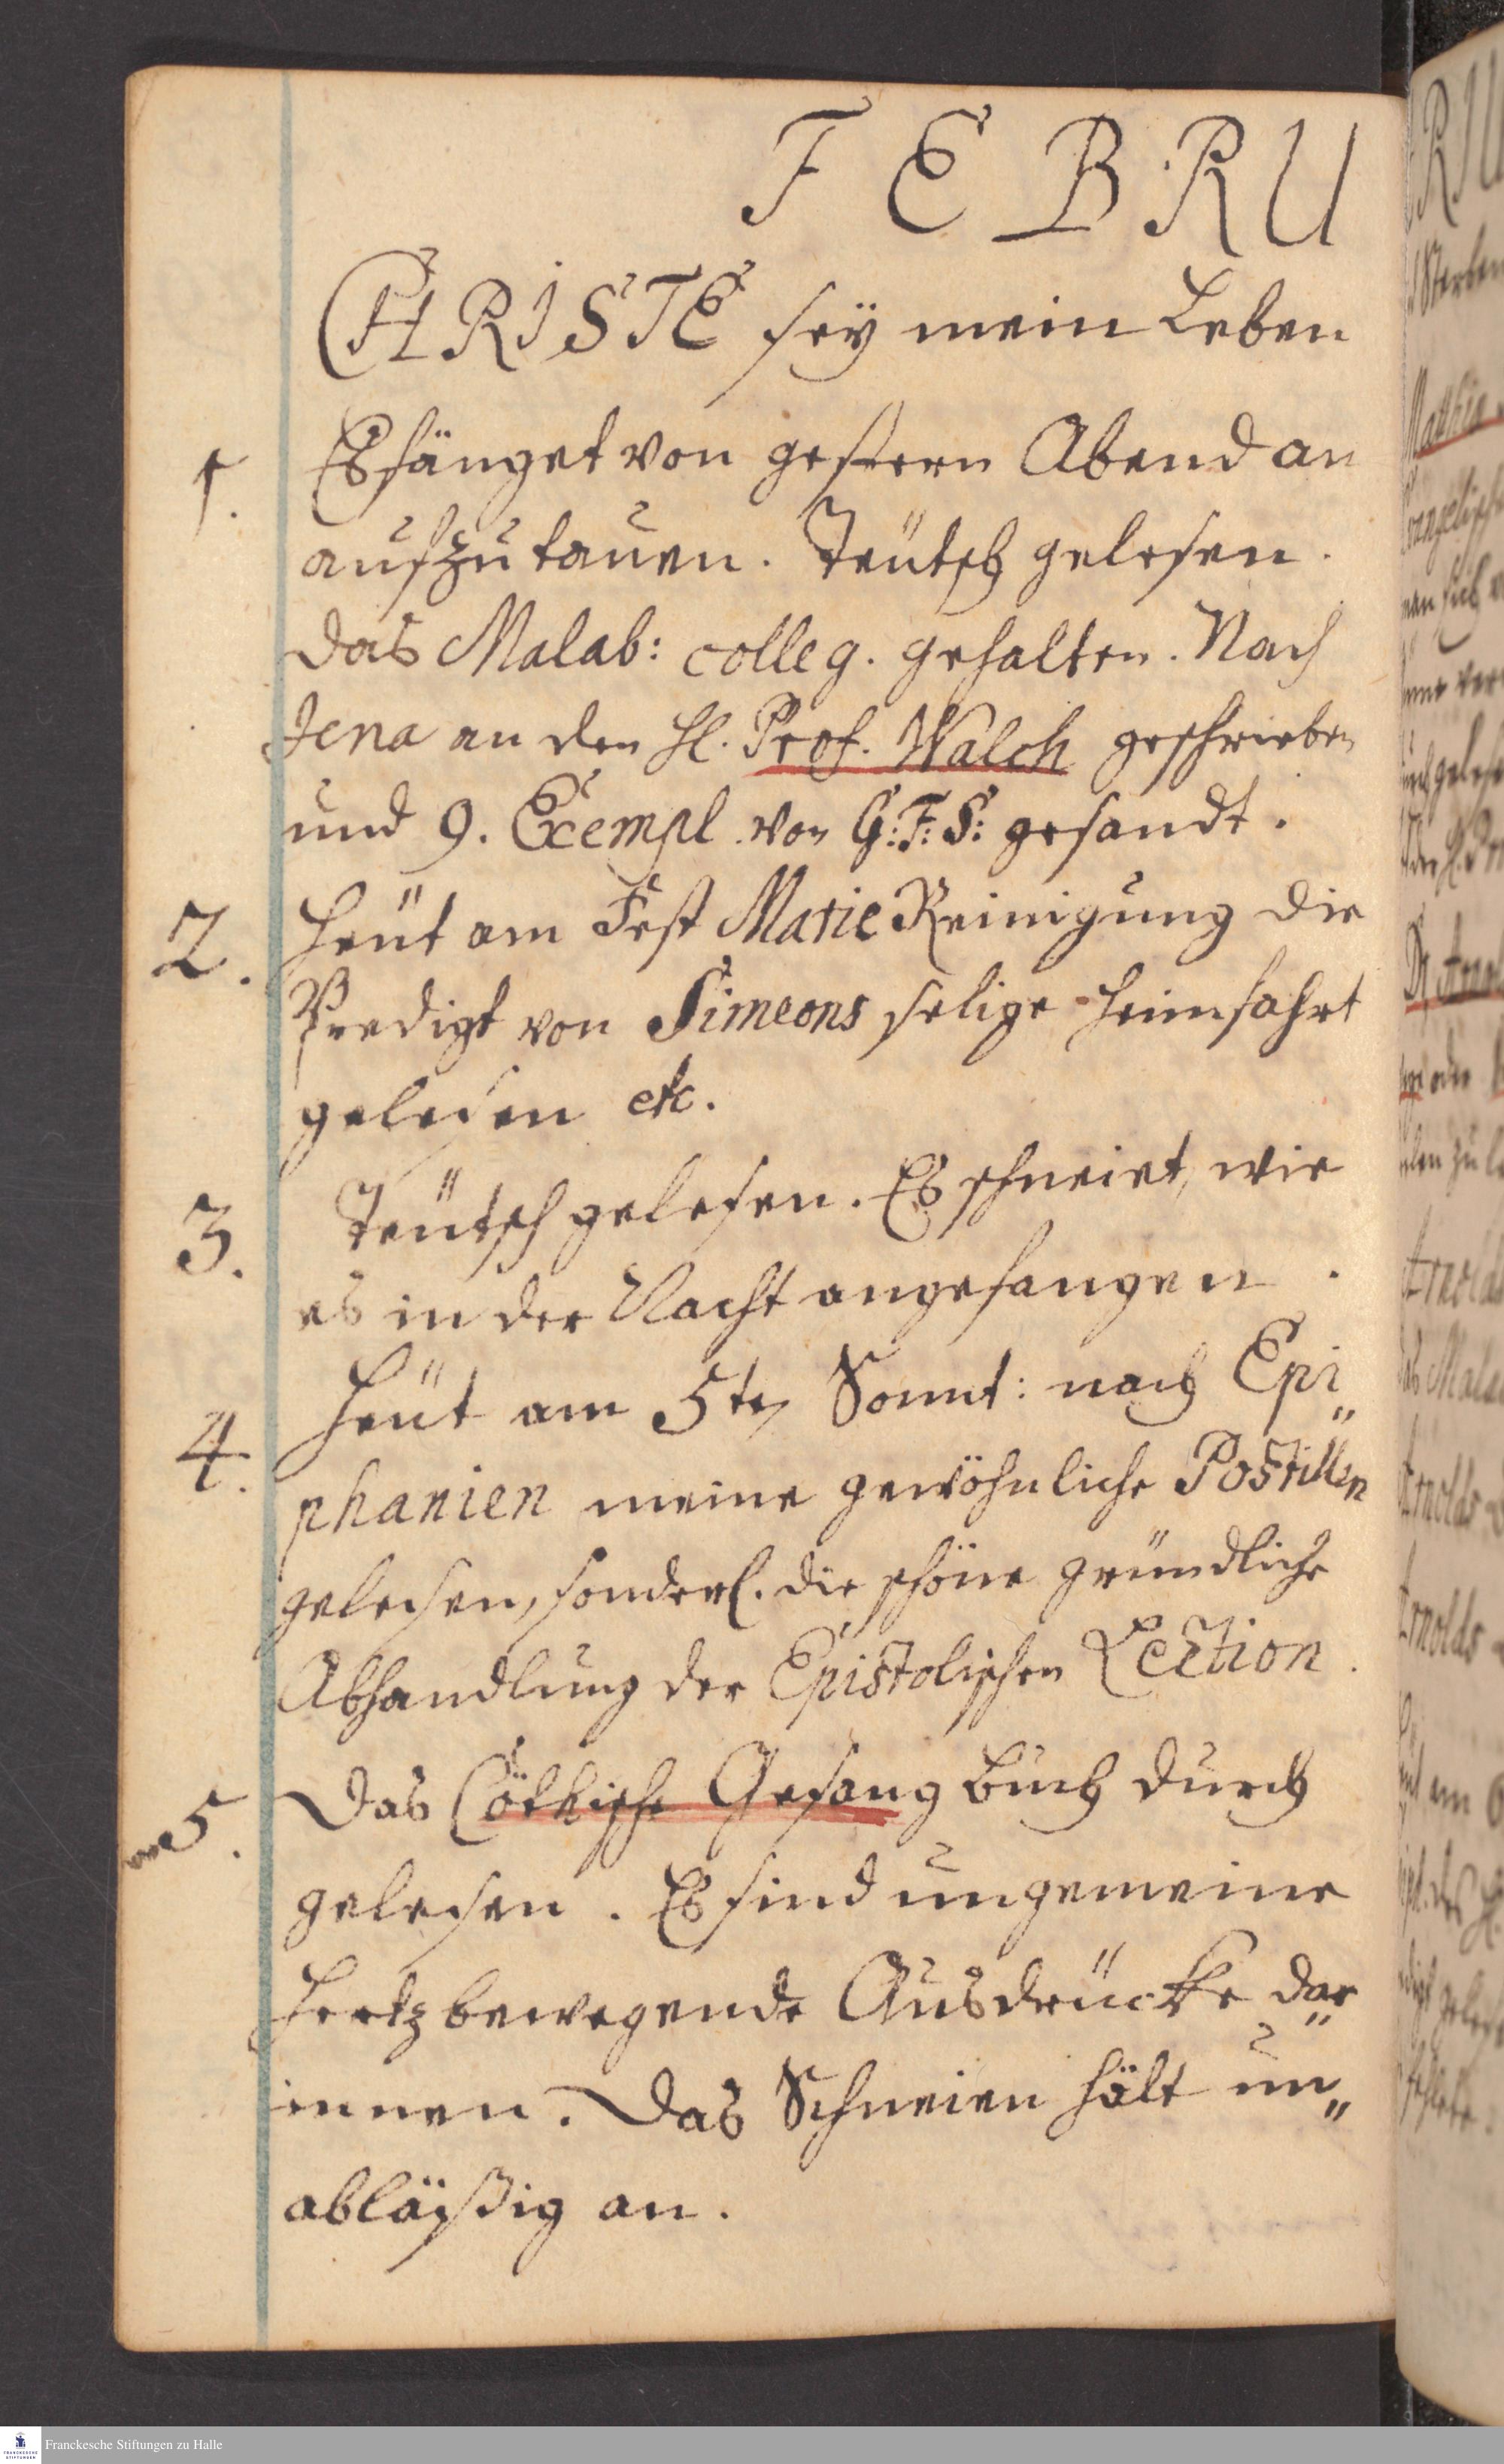 FEBRU
CHRISTE sey mein Leben
1. Es fänget von gestern Abend an
aufzutauen. Teütsch gelesen.
Das Malab: colleg. gehalten. Nach
Jena an den H. Prof. Walch geschrieben
und 9. Exempl. von G: F: S: gesandt.
2. Heüt am Fest Marie Reinigung die
Predigt von Simeons selige Heimfahrt
gelesen etc.
3. Teütsch gelesen. Es schneiet, wie
es in der Nacht angefangen.
4. Heüt am 5ten Sonnt: nach Epi„
phanien meine gewöhnliche Postillen
gelesen, sonderl. die schöne gründliche
Abhandlung der Epistolischen Lection.
5. Das Cöthische Gesang Buch durch
gelesen. Es sind ungemeine
Hertzbewegende Ausdrücke dar„
innen. Das Schneien hält un„
abläßig an.
Franckesche Stiftungen zu Halle